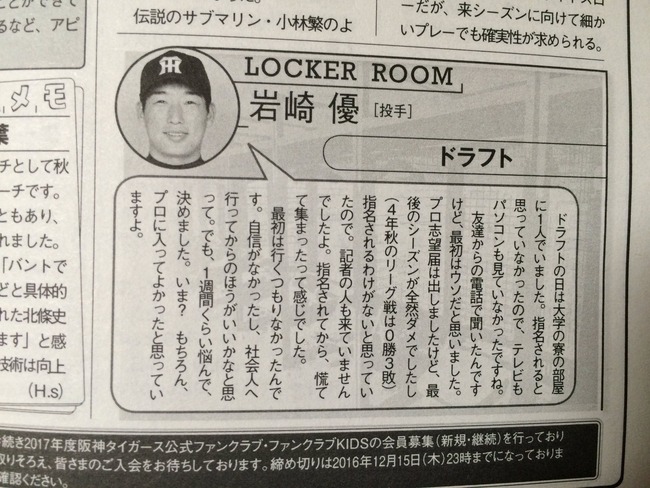 伝説のサブマリン・小林繁のよ
ーだが、来シーズンに向けて細か
いプレーでも確実性が求められる。
LOCKER ROOM
岩崎 優 [投手]
ドラフト
ドラフトの日は大学の寮の部屋
に1人でいました。指名されると
思っていなかったので、テレビも
パソコンも見ていなかったですね。
友達からの電話で聞いたんです
けど、最初はウソだと思いました。
プロ志望届は出しましたけど、最
後のシーズンが全然ダメでしたし
(4年秋のリーグ戦は0勝3敗)
指名されるわけがないと思ってい
たので。記者の人も来ていません
でしたよ。指名されてから、慌て
て集まったって感じでした。
最初は行くつもりなかったんで
す。自信がなかったし、社会人へ
行ってからのほうがいいかなと思
って。でも、1週間くらい悩んで、
決めました。いま? もちろん、
プロに入ってよかったと思ってい
ますよ。
など、アピ
メモ
チとして秋
ーチです。
ともあり、
れました。
「バントで
どと具体的
れた北條史
ます」と感
技術は向上
(H.s)
続き2017年度阪神タイガース公式ファンクラブ・ファンクラブKIDSの会員募集(新規・継続)を行っており
取りそろえ、皆さまのご入会をお待ちしております。締め切りは2016年12月15日(木)23時までになっておりま
確認ください。